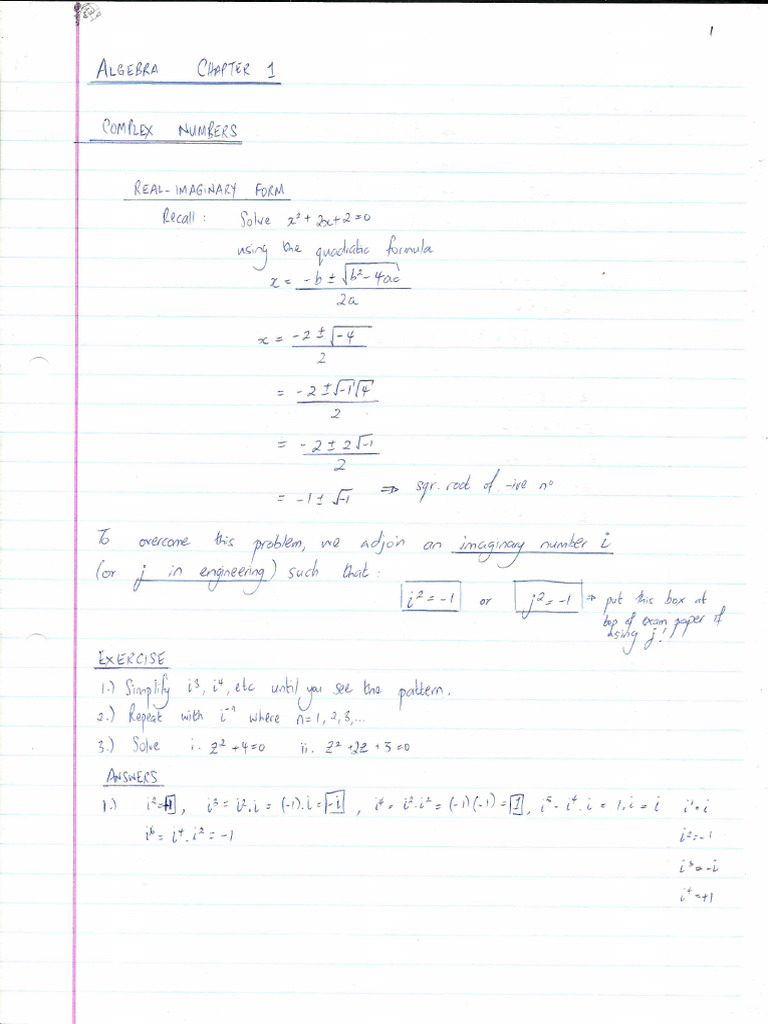 1
ALGEBRA CHAPTER 1
COMPLEX NUMBERS
REAL-IMAGINARY FORM
Recall: Solve x² + 2x + 2 = 0
using the quadratic formula
x = (-b ± √(b² - 4ac)) / 2a
x = (-2 ± √-4) / 2
= (-2 ± √-1 √4) / 2
= (-2 ± 2√-1) / 2
= -1 ± √-1 ⇒ sqr. root of -ive n°
To overcome this problem, we adjoin an imaginary number i
(or j in engineering) such that:
i² = -1 or j² = -1 ⇒ put this box at
top of exam paper if
using j!
EXERCISE
1.) Simplify i³, i⁴, etc until you see the pattern.
2.) Repeat with i⁻ⁿ where n = 1, 2, 3, ...
3.) Solve i. z² + 4 = 0 ii. z² + 2z + 3 = 0
ANSWERS
1.) i² = -1, i³ = i².i = (-1).i = -i, i⁴ = i².i² = (-1)(-1) = 1, i⁵ = i⁴.i = 1.i = i i¹ = i
i⁶ = i⁴.i² = -1 i² = -1
i³ = -i
i⁴ = +1